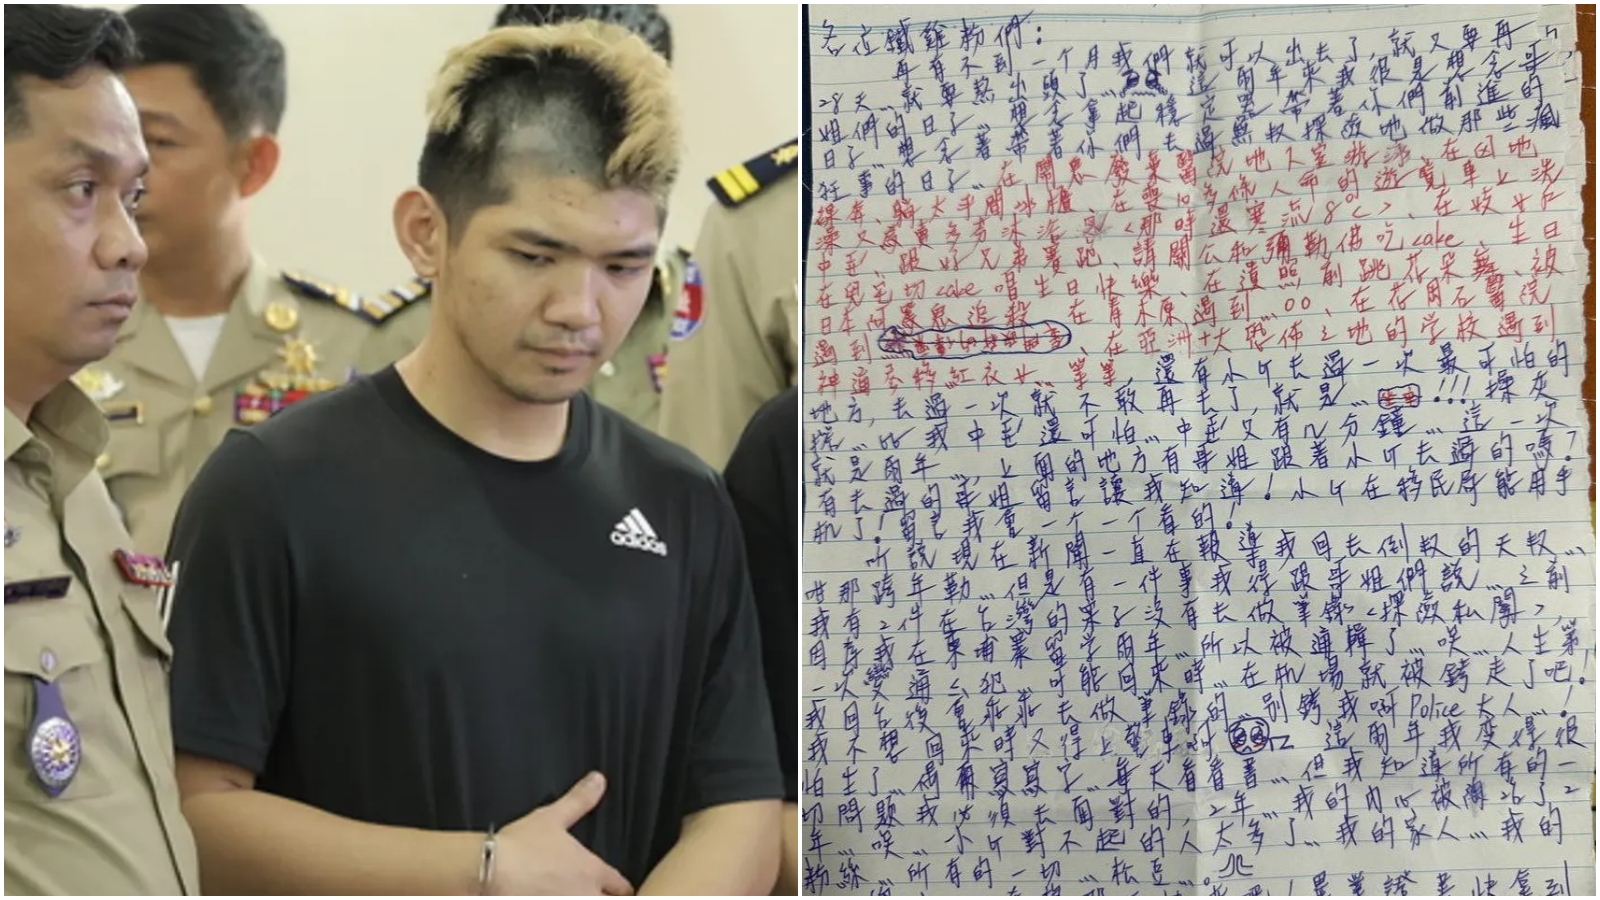 adidas
各位鐵雞粉們：
再有不到一个月我們就可以出去了，就又要再
28天…就要熬出頭了…這兩年來我很是想念哥
姐們的日子…想念拿起穩定器帶著你們前進的
日子…想念著帶著你們去過無數探險地做那些瘋
狂事的日子…在鬧鬼廢棄醫院地下室游泳、在凶地
探奔、躺太平間冰櫃、在 10多條人命的遊覽車上洗
澡又 泡澡<那時還寒流8°C>、在
中 、跟好兄弟賽跑、請關公和彌勒佛吃cake、生日
在鬼宅切cake唱生日快樂、在遺照前跳花朵舞、被
日本阿 追殺、在青木原遇到…00、在花岡石醫院
遇到 、在亞洲十大恐怖之地的学校遇到
神道 紅衣女…等等、還有小 去過一次最可怕的
地方，去過一次就不敢再去了，就是… !!!操灰
…比我中 還可怕…中 又有几分鐘…這一次
就是兩年…，上面的地方有哥姐跟著小 去過的嗎？
有去過的哥姐留言讓我知道！小 在移民局能用手
机了！留言我會一个一个看的！
听說現在新聞一直在報導我回去倒數的天數…
咁那跨年勒…但是有一件事我得跟哥姐們說…之前
我有2件在台灣的案子沒有去做筆錄<探險私闖>，
因為我在柬埔寨留学兩年…所以被通輯了…唉…人生第
一次變通 犯…可能回來時…在机場就被銬走了吧！
我回台後會乖乖去做筆錄的…別銬我啊Police大人…！
我不想回來時又得上警車啊 這兩年我变得很
怕生了…偶爾寫寫字…每天看看書…但我知道所有的一
切問題我必須去面對的，2年…我的内心被 了2
年…唉…小 對不起的人太多了…我的家人…我的
粉絲…所有的一切…松 …。
證 快拿到